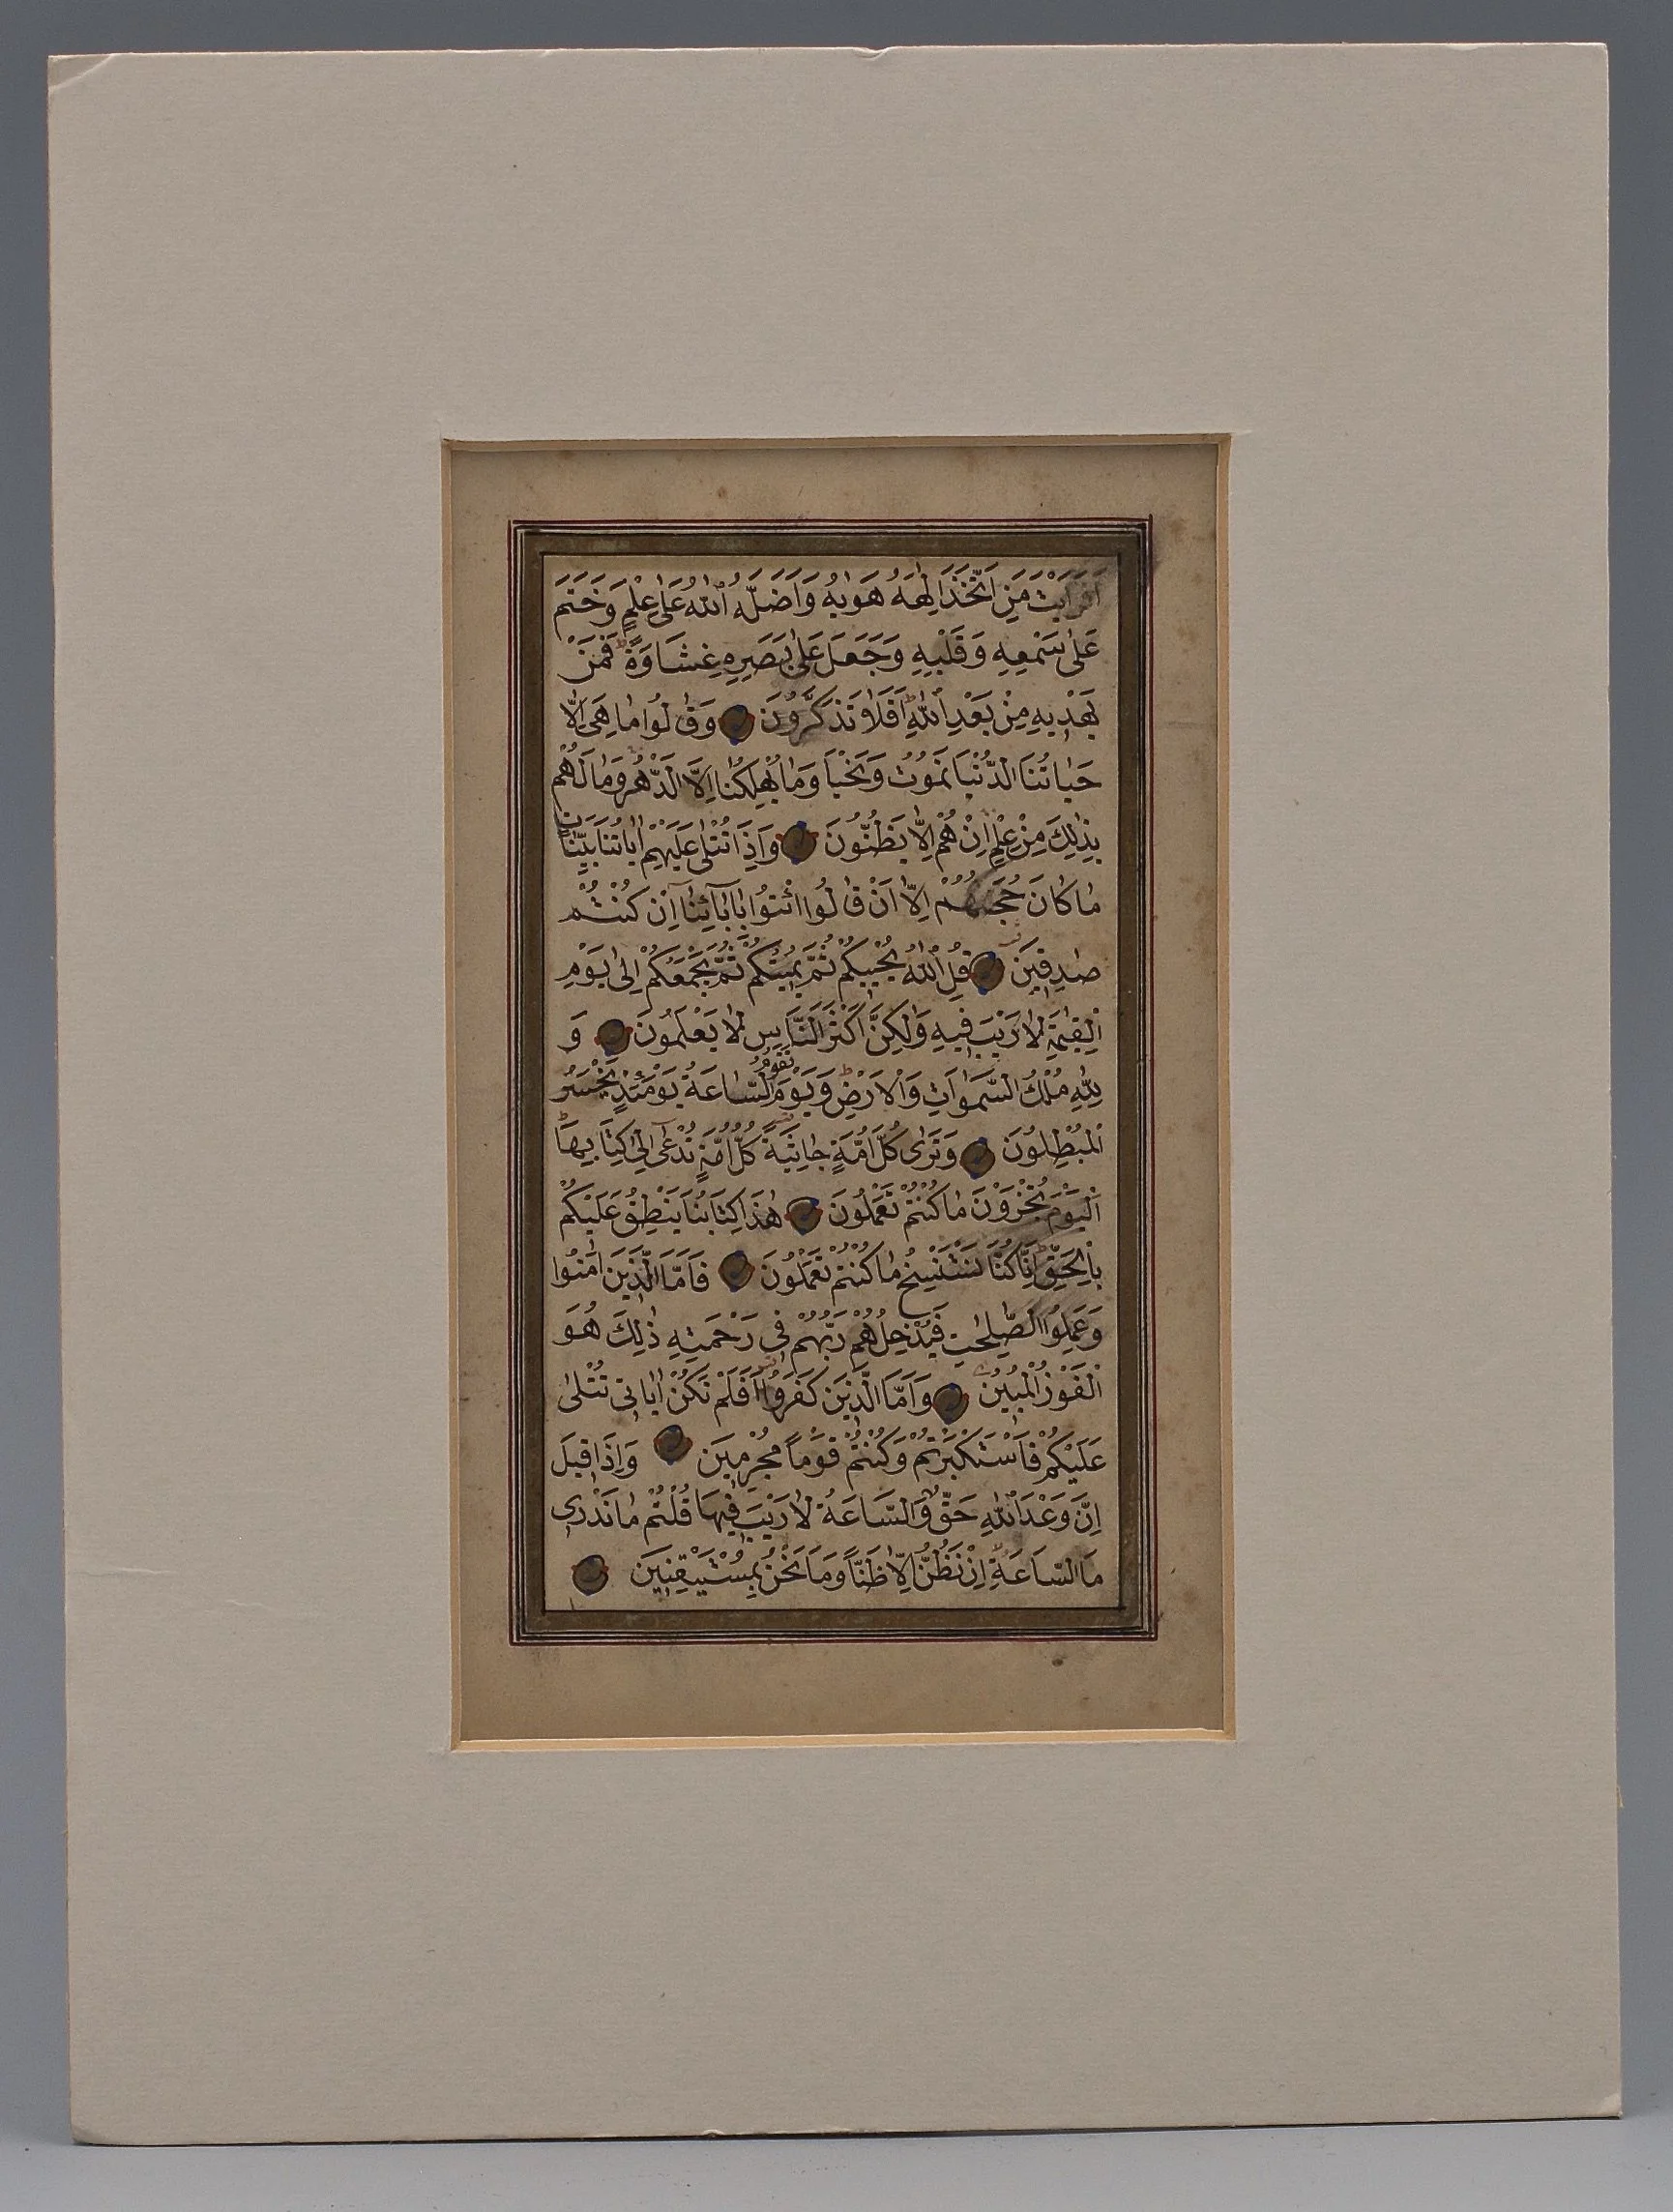 اَفَرَاَيْتَ مَنِ اتَّخَذَ اِلٰهَهُ هَوٰيهُ وَاَضَلَّهُ اللّٰهُ عَلٰى عِلْمٍ وَخَتَمَ
عَلٰى سَمْعِهِ وَقَلْبِهِ وَجَعَلَ عَلٰى بَصَرِهِ غِشَاوَةً ط فَمَنْ
يَهْدِيهِ مِنْ بَعْدِ اللّٰهِ ط اَفَلَا تَذَكَّرُونَ وَقَالُوا مَا هِىَ اِلَّا
حَيَاتُنَا الدُّنْيَا نَمُوتُ وَنَحْيَا وَمَا يُهْلِكُنَا اِلَّا الدَّهْرُ وَمَا لَهُمْ
بِذٰلِكَ مِنْ عِلْمٍ اِنْ هُمْ اِلَّا يَظُنُّونَ وَاِذَا تُتْلٰى عَلَيْهِمْ اٰيَاتُنَا بَيِّنَاتٍ
مَا كَانَ حُجَّتَهُمْ اِلَّا اَنْ قَالُوا ائْتُوا بِاٰبَآئِنَا اِنْ كُنْتُمْ
صٰدِقِينَ قُلِ اللّٰهُ يُحْيِيكُمْ ثُمَّ يُمِيتُكُمْ ثُمَّ يَجْمَعُكُمْ اِلٰى يَوْمِ
الْقِيٰمَةِ لَا رَيْبَ فِيهِ وَلٰكِنَّ اَكْثَرَ النَّاسِ لَا يَعْلَمُونَ وَ
لِلّٰهِ مُلْكُ السَّمٰوَاتِ وَالْاَرْضِ ط وَيَوْمَ تَقُومُ السَّاعَةُ يَوْمَئِذٍ يَخْسَرُ
الْمُبْطِلُونَ وَتَرٰى كُلَّ اُمَّةٍ جَاثِيَةً كُلُّ اُمَّةٍ تُدْعٰٓى اِلٰى كِتَابِهَا ط
اَلْيَوْمَ تُجْزَوْنَ مَا كُنْتُمْ تَعْمَلُونَ هٰذَا كِتَابُنَا يَنْطِقُ عَلَيْكُمْ
بِالْحَقِّ ط اِنَّا كُنَّا نَسْتَنْسِخُ مَا كُنْتُمْ تَعْمَلُونَ فَاَمَّا الَّذِينَ اٰمَنُوا
وَعَمِلُوا الصّٰلِحٰتِ فَيُدْخِلُهُمْ رَبُّهُمْ فِى رَحْمَتِهِ ذٰلِكَ هُوَ
الْفَوْزُ الْمُبِينُ وَاَمَّا الَّذِينَ كَفَرُوا اَفَلَمْ تَكُنْ اٰيَاتِى تُتْلٰى
عَلَيْكُمْ فَاسْتَكْبَرْتُمْ وَكُنْتُمْ قَوْمًا مُجْرِمِينَ وَاِذَا قِيلَ
اِنَّ وَعْدَ اللّٰهِ حَقٌّ وَالسَّاعَةُ لَا رَيْبَ فِيهَا قُلْتُمْ مَا نَدْرِى
مَا السَّاعَةُ اِنْ نَظُنُّ اِلَّا ظَنًّا وَمَا نَحْنُ بِمُسْتَيْقِنِينَ